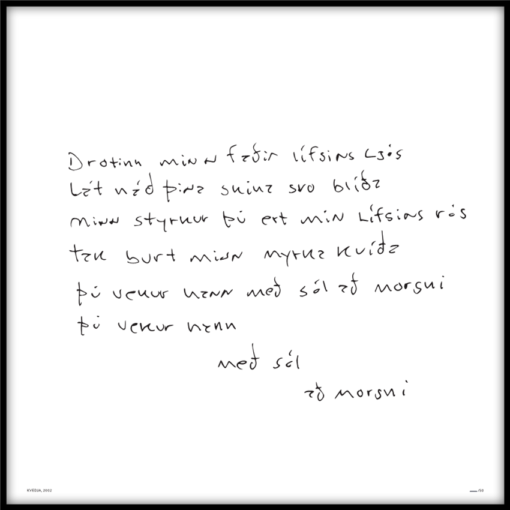 Drottinn minn faðir lífsins ljós
Lát náð þína skína svo blíða
minn styrkur þú ert mín lífsins rós
tak burt minn myrka kvíða
þú vekur hann með sól að morgni
þú vekur hann
með sól
að morgni